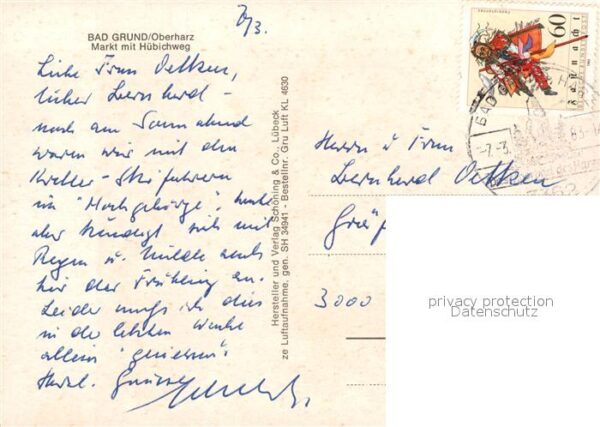 7/3.
BAD GRUND/Oberharz
Markt mit Hübichweg
Liebe Frau Oetken,
lieber Bernhard -
noch am Sonnabend
waren wir mit den
Skifahrern
im "Hochgebirge", heute
aber kündigt sich mit
Regen u. Milde auch
hier der Frühling an.
Leider muß ich dies
in der letzten Woche
allein "genießen".
Herzl. Grüsse
Hersteller und Verlag Schöning & Co., Lübeck
gen. SH 34941 - Bestellnr. Gru Luft KL 4630
ze Luftaufnahme,
60
Fastnacht
-7-3.
Herrn u Frau
Bernhard Oetken
3000
privacy protection
Datenschutz